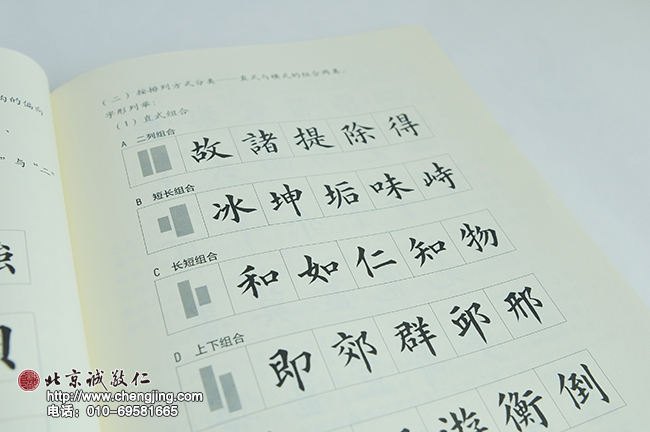 (二)按排列方式分类——直式与横式的组合两类。
字形列举:
(1)直式组合
A 二列组合
故 諸 提 除 得
B 短长组合
冰 坤 垢 味 峙
C 长短组合
和 如 仁 知 物
D 上下组合
即 郊 群 邱 邢
游 衡 倒
北京诚敬仁
http://www.chengjing.com
电话：010-69581665